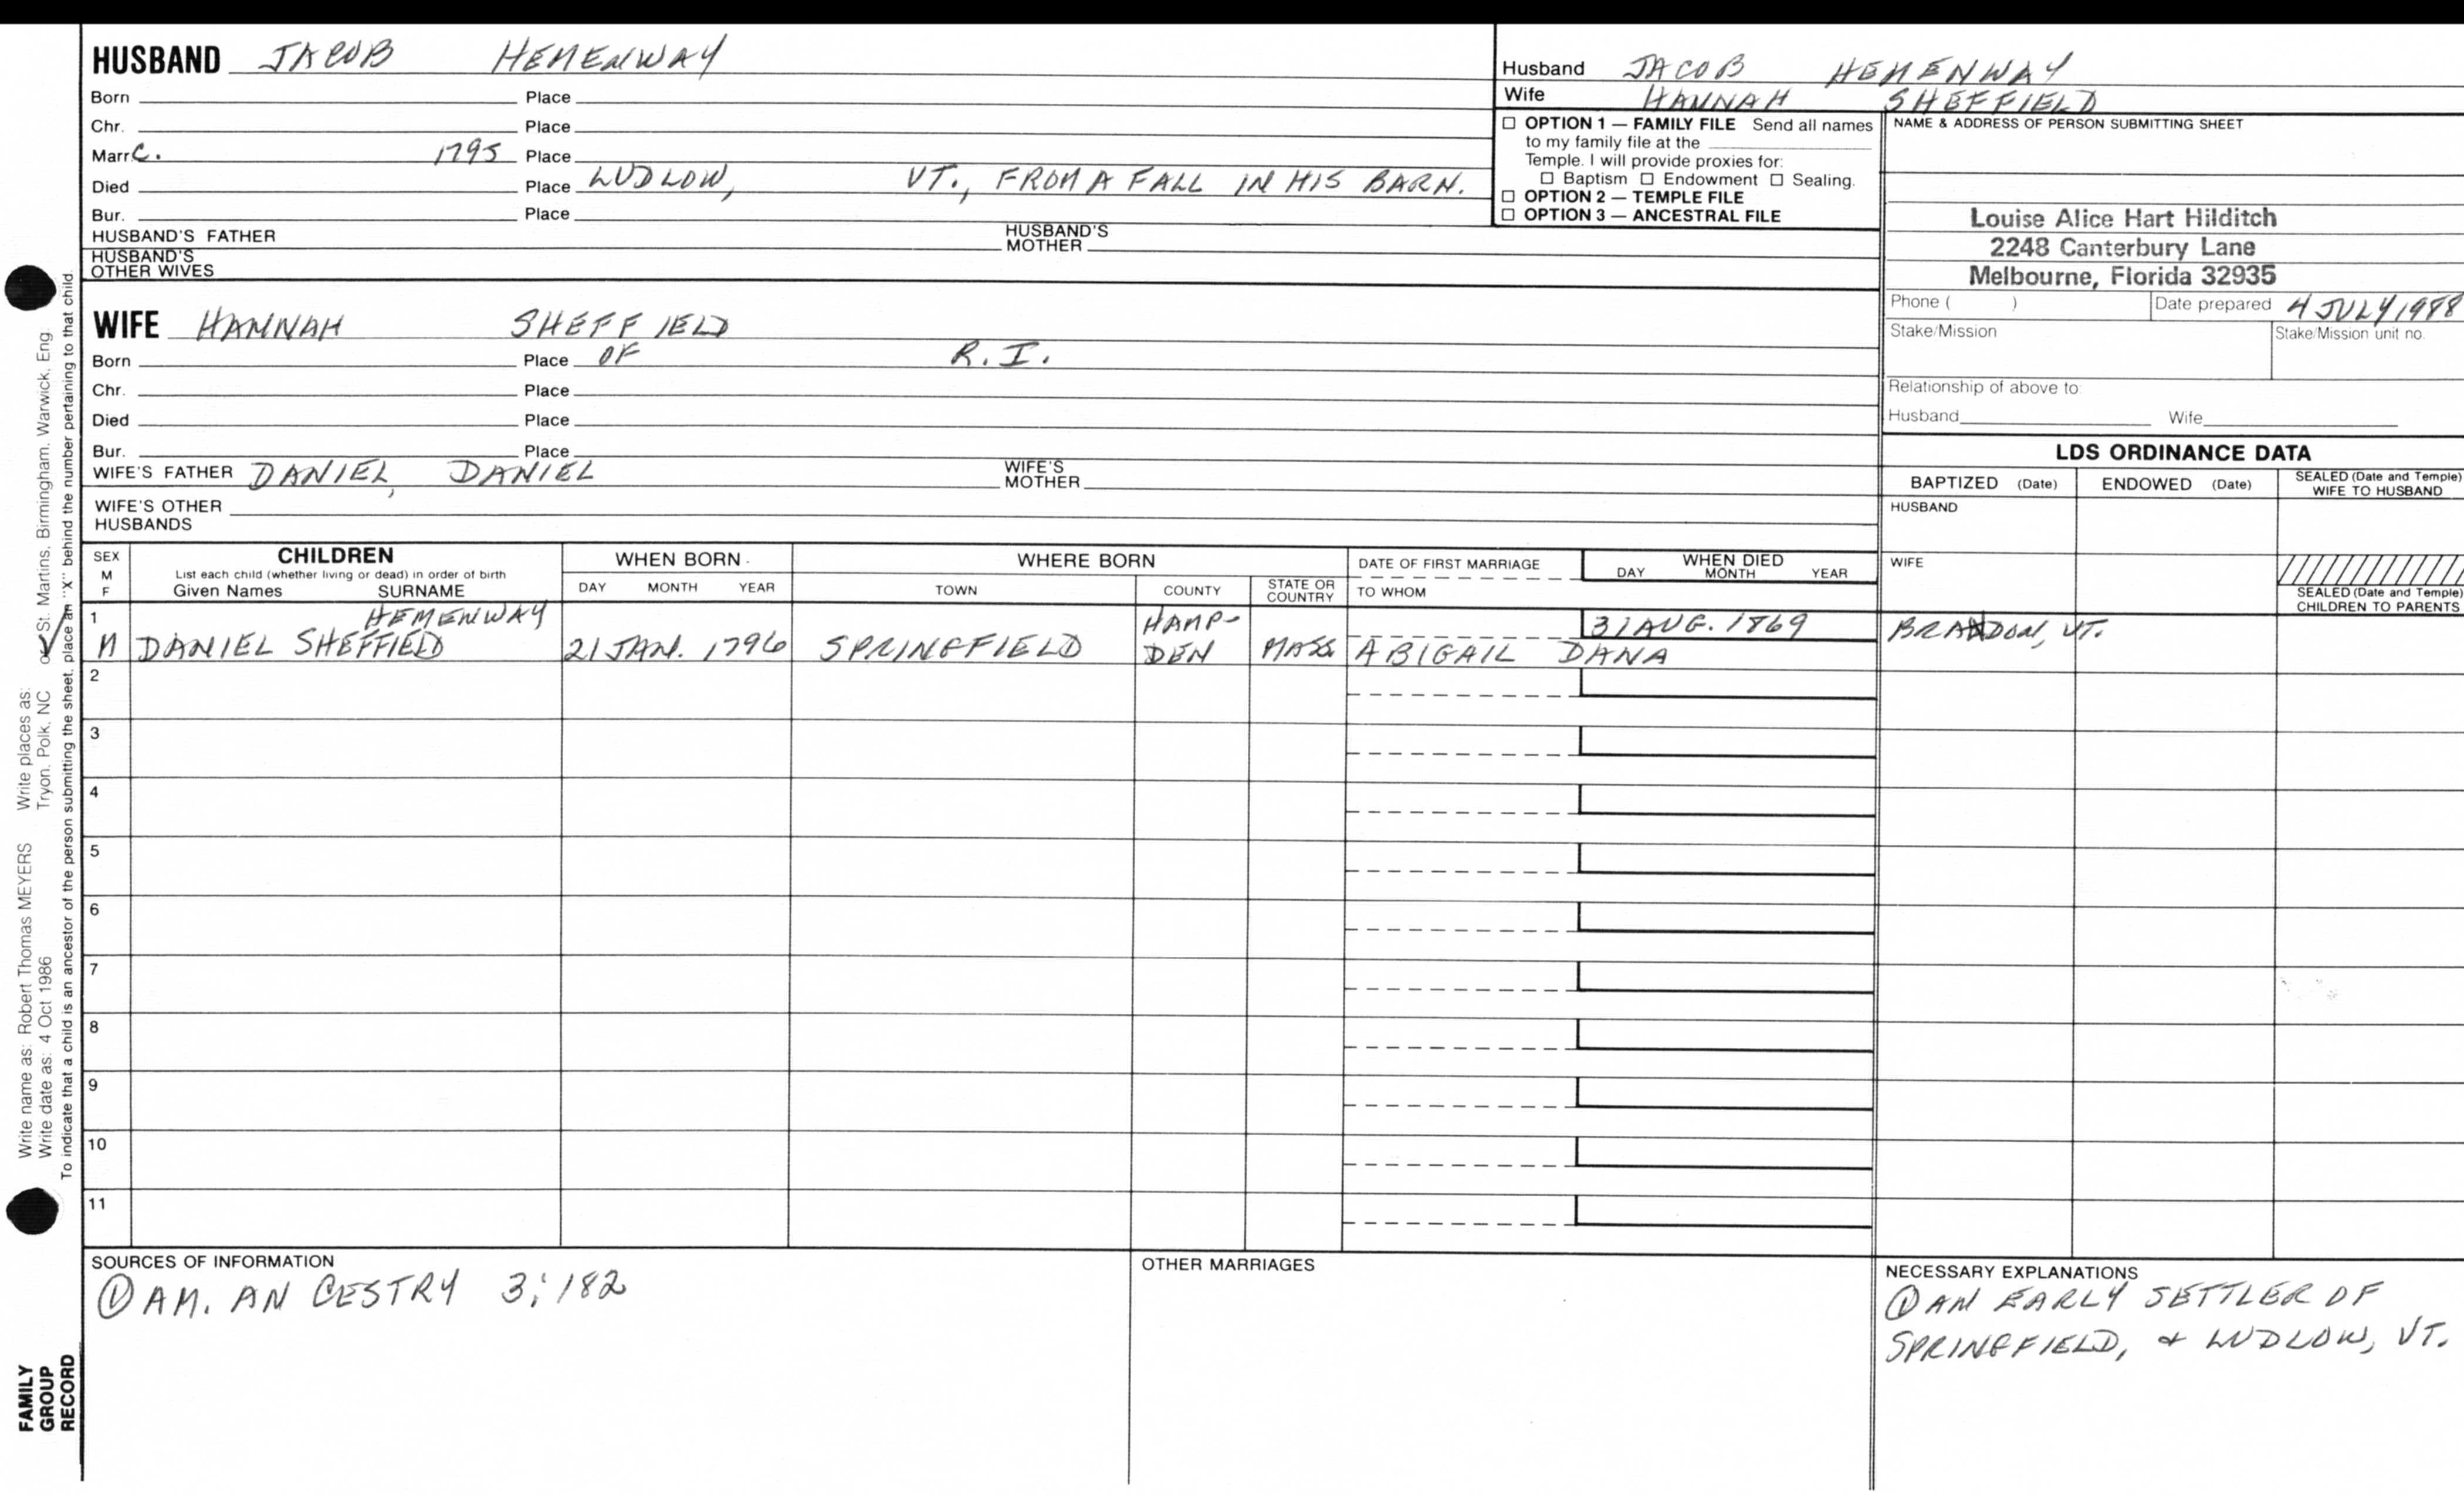 HUSBAND JACOB HEMENWAY
Born Place
Chr. Place
Marr. C. 1795 Place
Died Place LUDLOW, VT., FROM A FALL IN HIS BARN.
Bur. Place
HUSBAND'S FATHER HUSBAND'S MOTHER
HUSBAND'S OTHER WIVES
Husband JACOB HEMENWAY
Wife HANNAH SHEFFIELD
☐ OPTION 1 — FAMILY FILE Send all names
to my family file at the
Temple. I will provide proxies for:
☐ Baptism ☐ Endowment ☐ Sealing.
☐ OPTION 2 — TEMPLE FILE
☐ OPTION 3 — ANCESTRAL FILE
NAME & ADDRESS OF PERSON SUBMITTING SHEET
Louise Alice Hart Hilditch
2248 Canterbury Lane
Melbourne, Florida 32935
Phone ( ) Date prepared 4 JULY 1988
Stake/Mission Stake/Mission unit no.
Relationship of above to:
Husband Wife
WIFE HANNAH SHEFFIELD
Born Place OF R.I.
Chr. Place
Died Place
Bur. Place
WIFE'S FATHER DANIEL, DANIEL WIFE'S MOTHER
WIFE'S OTHER HUSBANDS
LDS ORDINANCE DATA
BAPTIZED (Date) ENDOWED (Date) SEALED (Date and Temple) WIFE TO HUSBAND
HUSBAND
WIFE
SEALED (Date and Temple) CHILDREN TO PARENTS
SEX M F
CHILDREN
List each child (whether living or dead) in order of birth
Given Names SURNAME
WHEN BORN
DAY MONTH YEAR
WHERE BORN
TOWN COUNTY STATE OR COUNTRY
DATE OF FIRST MARRIAGE
TO WHOM
WHEN DIED
DAY MONTH YEAR
1 HEMENWAY HAMP- 31 AUG. 1869 BRANDON, VT.
M DANIEL SHEFFIELD 21 JAN. 1796 SPRINGFIELD DEN MASS ABIGAIL DANA
2
3
4
5
6
7
8
9
10
11
SOURCES OF INFORMATION
① AM. ANCESTRY 3:182
OTHER MARRIAGES
NECESSARY EXPLANATIONS
① AN EARLY SETTLER OF
SPRINGFIELD, & LUDLOW, VT.
Write name as: Robert Thomas MEYERS Write places as:
Write date as: 4 Oct 1986 Tryon, Polk, NC or St. Martins, Birmingham, Warwick, Eng
To indicate that a child is an ancestor of the person submitting the sheet, place an "X" behind the number pertaining to that child.
FAMILY
GROUP
RECORD